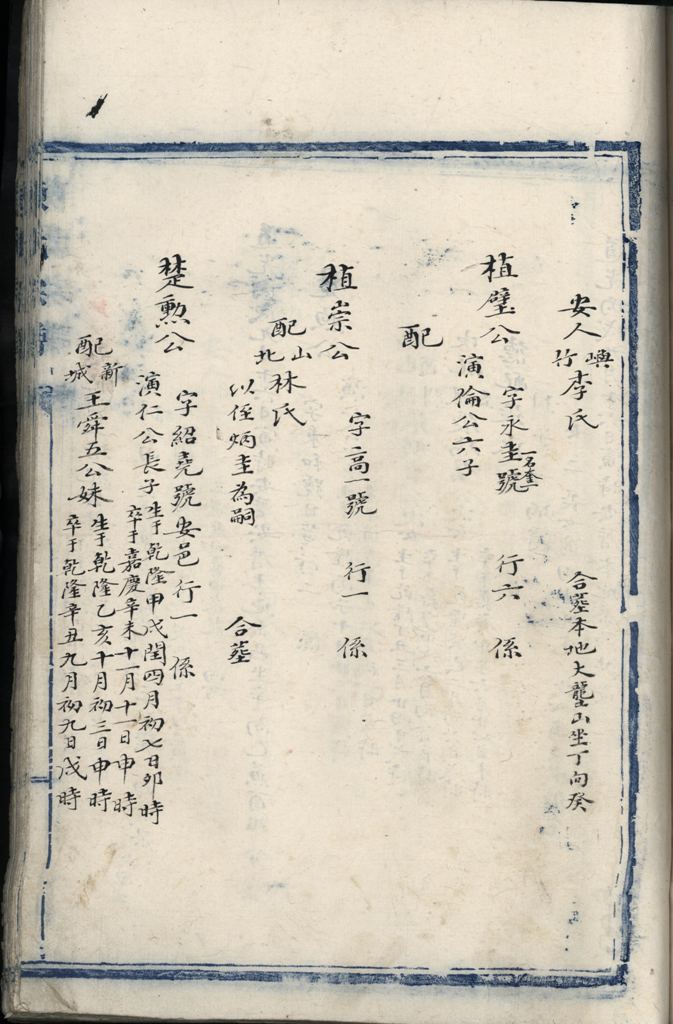 安人嶼竹李氏 合墓本地大壟山坐丁向癸
植璧公 字永圭號一名奎一 行六 係
演倫公六子
配
植崇公 字高一號 行一 係
配山北林氏
以侄炳圭為嗣 合墓
楚勲公 字紹堯號安邑 行一 係
演仁公長子 生于乾隆甲戌閏四月初七日卯時
卒于嘉慶辛未十一月十一日申時
配新城王舜五公妹 生于乾隆乙亥十月初三日申時
卒于乾隆辛丑九月初九日戌時